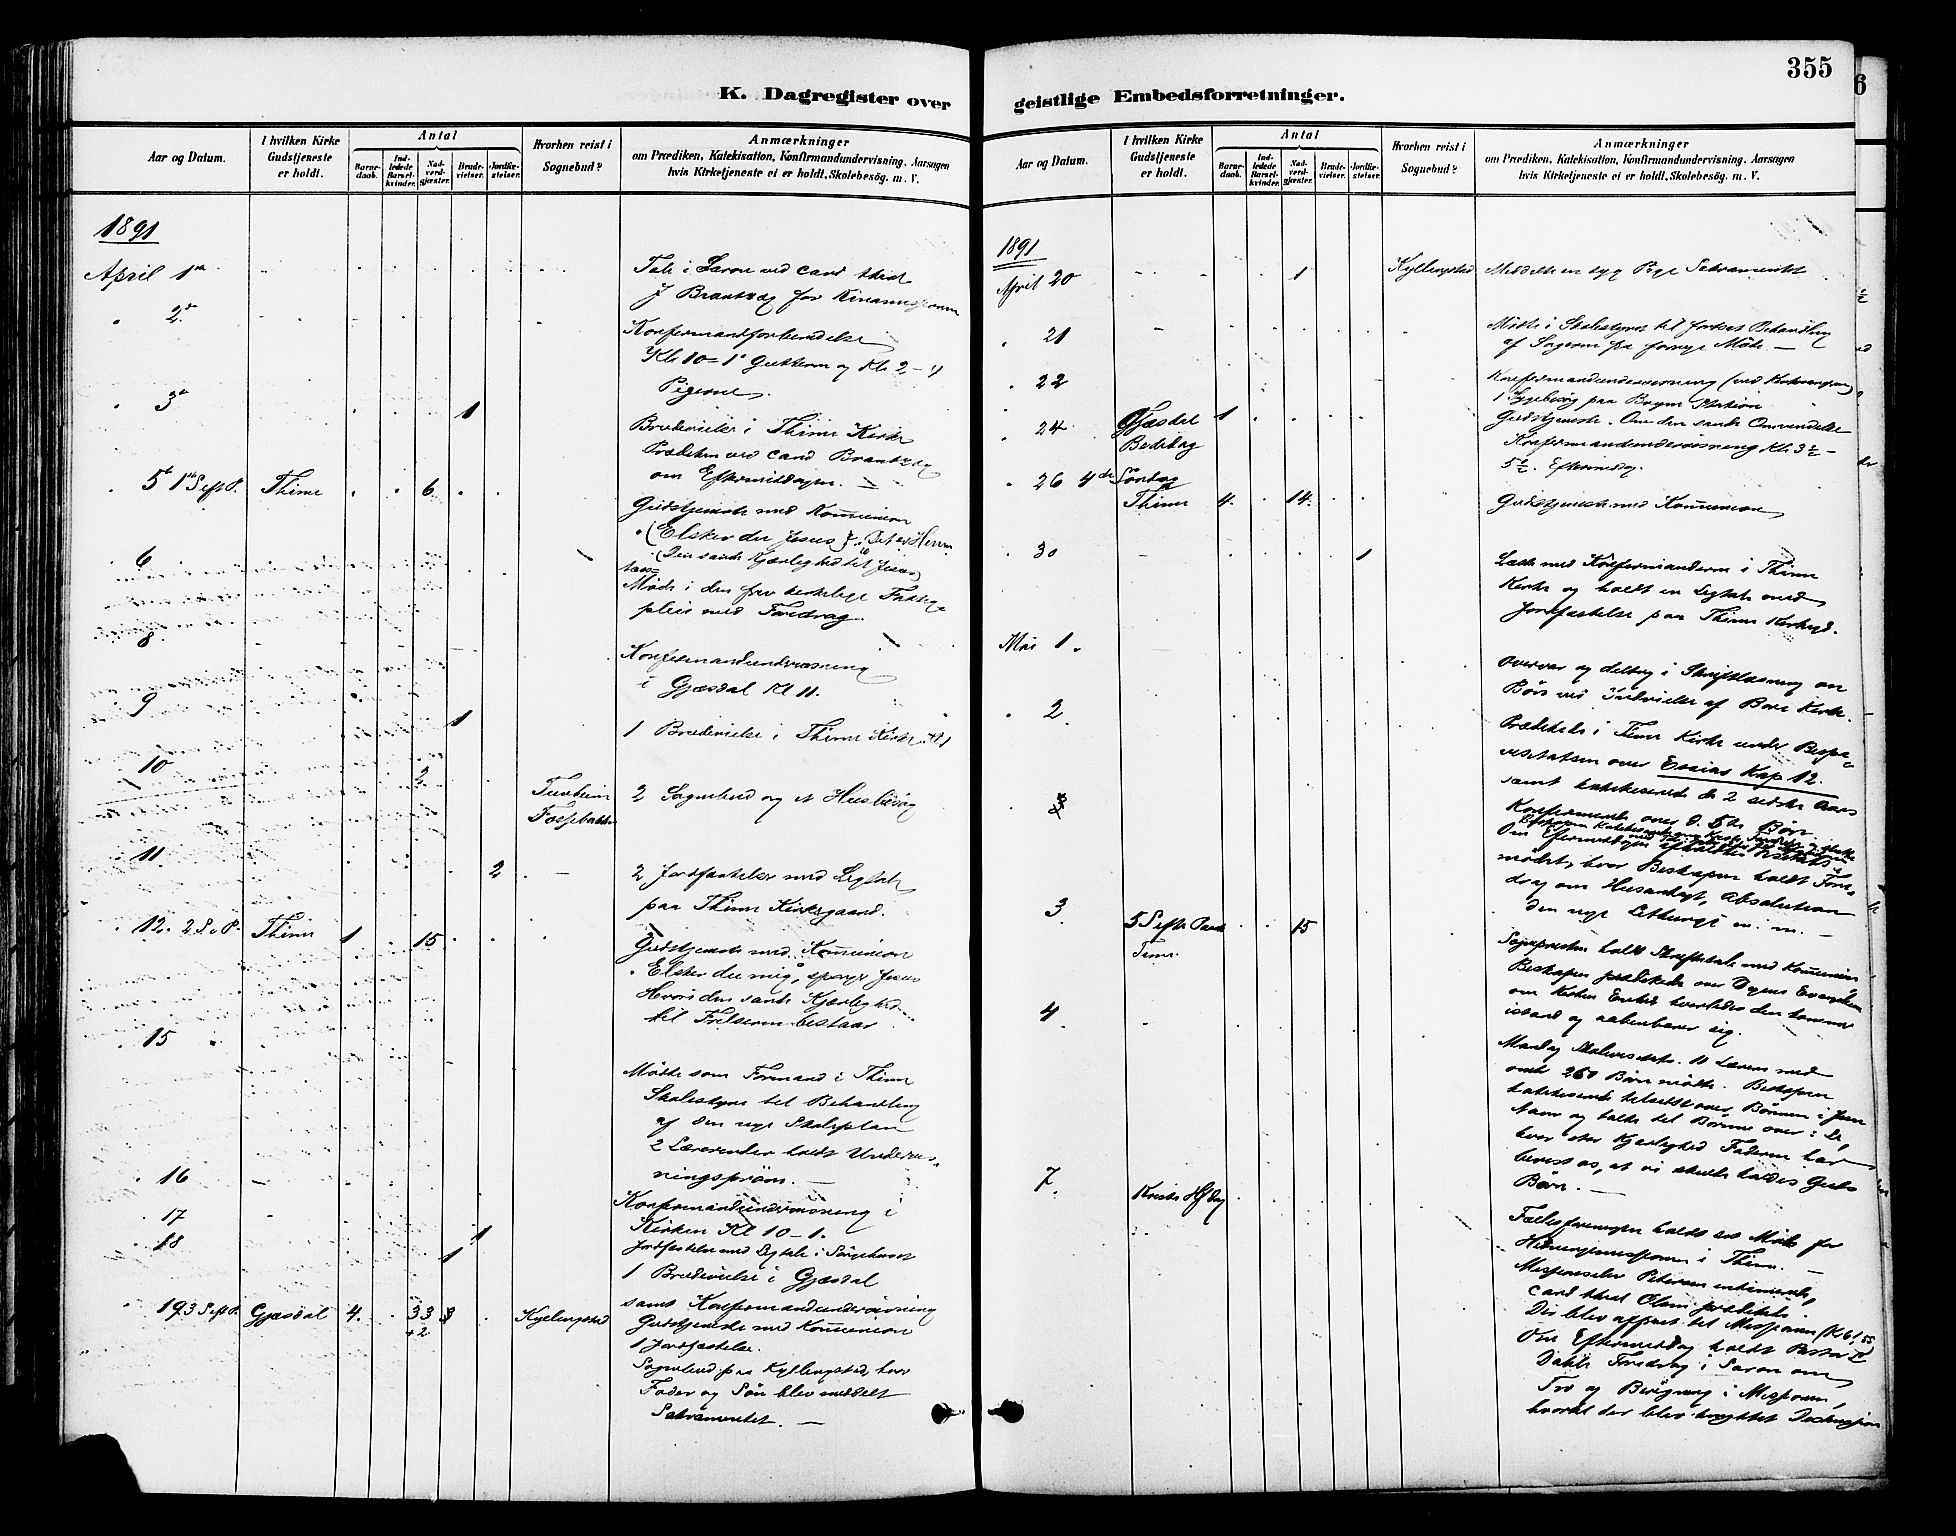 355
K. Dagregister over
geistlige Embedsforretninger.
Aar og Datum.
I hvilken Kirke
Gudstjeneste
er holdt.
Antal
Barne-
daab.
Ind-
ledede
Barsel-
kvinder.
Nad-
verd-
gjæster.
Brude-
vielser.
Jordfæ-
stelser.
Hvorhen reist i
Sognebud?
Anmærkninger
om Prædiken, Katekisation, Konfirmandundervisning. Aarsagen
hvis Kirketjeneste ei er holdt, Skolebesøg. m. V.
1891
April 1
Tale i Saron ved cand theol
J Brantzæg for Kinamissionen
2
Konfirmandforberedelse
Kl: 10-1 Gutterne og Kl: 2-4
Pigerne
3
1
Brudevielse i Thime Kirke
Prædiken ved cand Brantzæg
om Eftermiddagen. —
5 1 S eft P. Thime 6
Gudstjeneste med Kommunion
(Elsker du Jesus)
(Den sande Kjærlighed til Jesus)
6
Møde i den kirkelige Fattig-
pleie med Foredrag
8
Konfirmandundervisning
i Gjæsdal Kl 11.
9
1
1 Brudevielse i Thime Kirke Kl 1
10
2
Tunheim
Fossebakken
2 Sognebud og et Husbesøg
11
2
2 Jordfæstelser med Ligtale
paa Thime Kirkegaard.
12. 2 S e P. Thime 1 15
Gudstjeneste med Kommunion
"Elsker du mig", spørger Jesus
Hvori den sande Kjærlighed
til Frelseren bestaar
15
Mødte som Formand i Thime
Skolestyre til Behandling
af den nye Skoleplan
2 holdt Undervis-
ningsprøve. —
16
Konfirmandundervisning i
Kirken Kl 10-1.
17
1
Jordfæstelse med Ligtale i Sørgehuset
18
1
1 Brudevielse i Gjæsdal
samt Konfirmandundervisning
19 3 S eft P. Gjæsdal 4. 33
+2
Kyllingstad
Gudstjeneste med Kommunion
1 Jordfæstelse.
Sognebud paa Kyllingstad, hvor
Fader og Søn blev meddelt
Sakramentet. —
Aar og Datum.
I hvilken Kirke
Gudstjeneste
er holdt.
Antal
Barne-
daab.
Ind-
ledede
Barsel-
kvinder.
Nad-
verd-
gjæster.
Brude-
vielser.
Jordfæ-
stelser.
Hvorhen reist i
Sognebud?
Anmærkninger
om Prædiken, Katekisation, Konfirmandundervisning. Aarsagen
hvis Kirketjeneste ei er holdt, Skolebesøg. m. V.
1891
April 20
1
Kyllingstad
Meddelte en syg Pige Sakramentet
21
Møde i Skolestyret til fortsat Behandling
af Sagerne fra forrige Møde. —
22
Konfirmandundervisning
1 Sygebesøg paa Bryne Station
24 Gjæsdal 1
Bededag
Gudstjeneste. Om den sande Omvendelse
Konfirmandundervisning Kl. 3½ –
5½. Eftermiddag.
26 4de Søndag
Thime 4. 14.
Gudstjeneste med Kommunion
30
1
Læste med Konfirmanderne i Thime
Kirke og holdt en Ligtale med
Jordfæstelse paa Thime Kirkegd.
Mai 1.
Overvar og deltog i Skriftlæsning
ved Indvielse af Bore Kirke.
2.
Prædikede i Thime Kirke under Bispe-
visitatsen over Esaias Kap 12.
samt katekiserede de 2 sidste Aars
Konfirmerede over d. 5te Bøn
Om Eftermiddagen
mødet, hvor Biskopen holdt Fore-
drag om Husandagt, Absolution
den nye Liturgi m. m. —
3
5 S eft Paask
Time.
15
Sognepresten holdt Skriftetale med Kommunion
Biskopen prædikede over Dagens Evangelium
om Kristen Enhed hvorledes den kommer
istand og aabenbarer sig.
4.
Mandag Skolevisitats. 11 Lærere med
omtr 260 Børn mødte. Biskopen
katekiserede over Bønnen i Jesu
Navn og talte til Børnene over: Se,
hvor stor Kjærlighed Faderen har
bevist os, at vi skulle kaldes Guds
Børn. —
7.
Kristi Hfdag
Fællesforeningen holdt sit Møde for
Hedningemissionen i Thime. —
cand theol prædiket.
Der blev ofret til Missionen
Om Eftermiddag holdt Pastor
Dahle Foredrag i Saron om
Tro og i Missionen,
hvortil der blev knyttet Diskussion